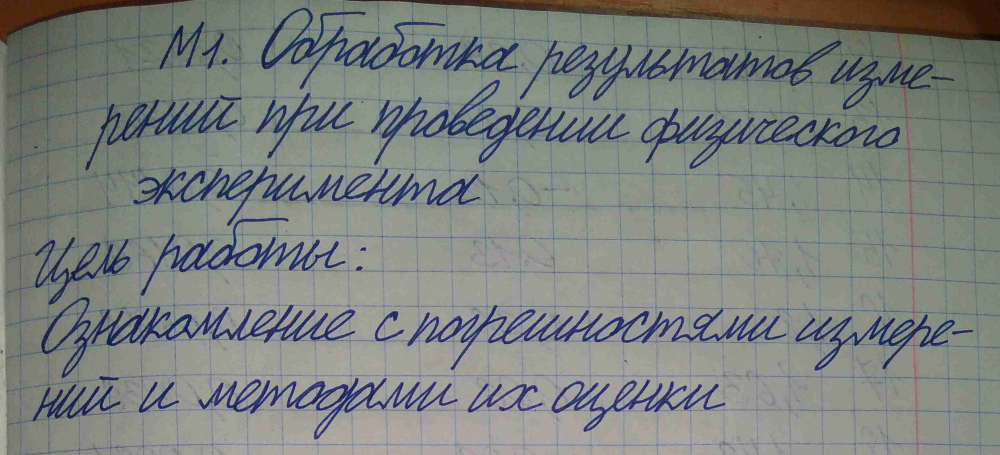 М1. Обработка результатов изме-
рений при проведении физического
эксперимента
Цель работы:
Ознакомление с погрешностями измере-
ний и методами их оценки